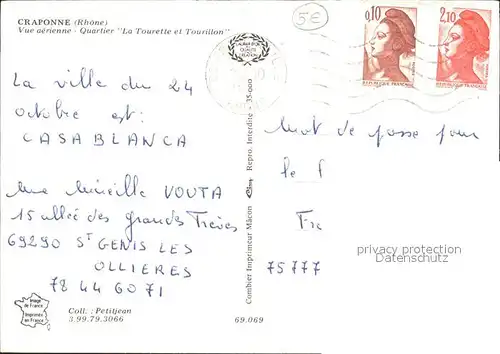 CRAPONNE (Rhône)
Vue aérienne - Quartier "La Tourette et Tourillon"
5€
0,10
2,10
La ville du 24
octobre est:
CASABLANCA
Mme Mireille VOUTA
15 allée des grands Trèves
69290 ST GENIS LES
OLLIERES
78 44 60 71
Image
de France
Imprimée
en France
Coll. : Petitjean
3.99.79.3066
69.069
Combier Imprimeur Mâcon
Repro. Interdite - 35.000
Mot de passe pour
le
75777
privacy protection
Datenschutz